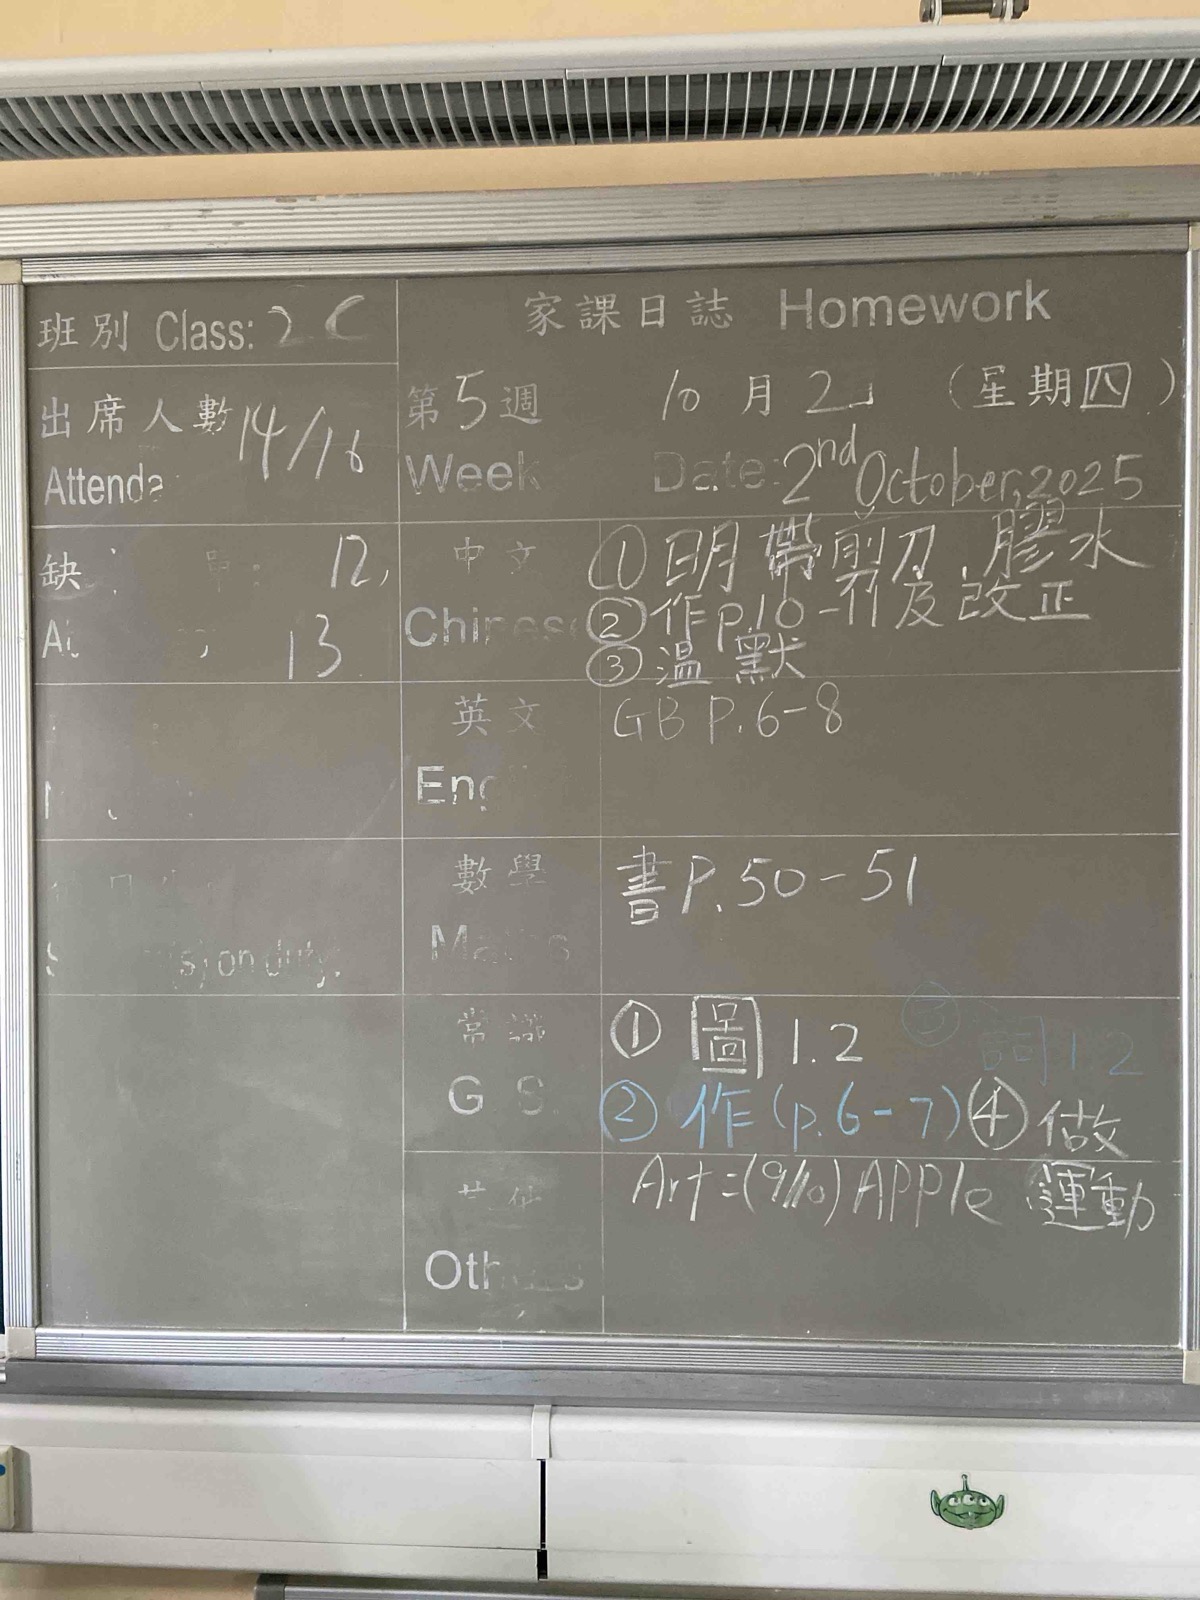 班別 Class: 2C
家課日誌 Homework
出席人數 14/16
Attenda
第5週 10月2日 (星期四)
Week Date: 2nd October, 2025
缺 12,
13
中文
Chinese
① 明帶剪刀、膠水
② 作p.10-11及改正
③ 溫默
英文
Eng
GB P.6-8
數學
Maths
書P.50-51
常識
G.S.
① 圖 1.2 ③ 詞1.2
② 作(p.6-7) ④ 做
運動
(s) on duty:
其他
Others
Art=(9/10) APPle